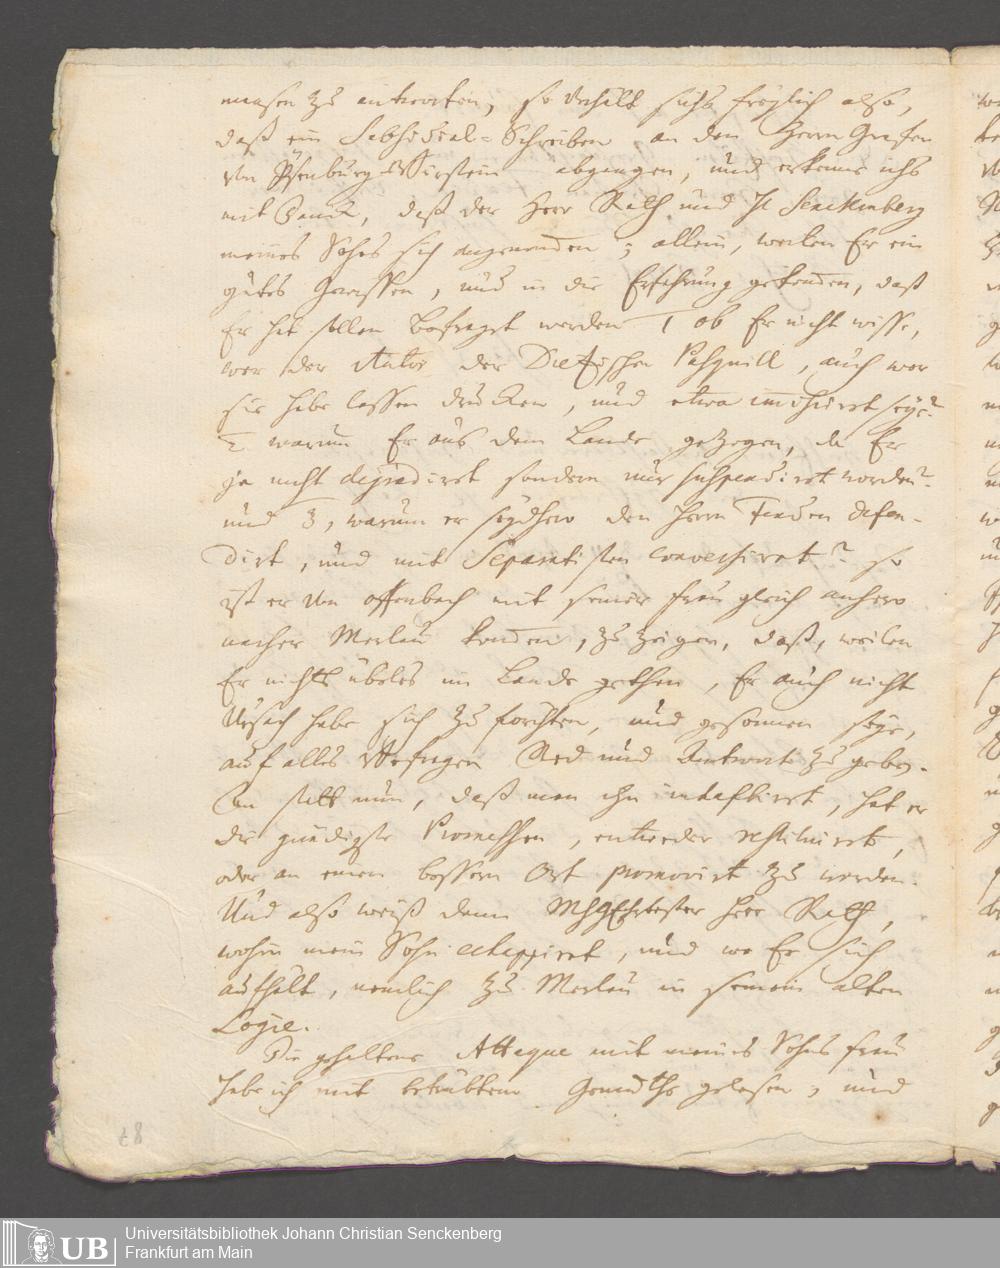 massen zu antworten, so verhält sichs freylich also,
daß ein Subsidial-Schreiben, an den Herrn Grafen
von Ysenburg-Birstein abgangen, und erkenne ichs
mit Danck, daß der Herr Rath und H. Senckenberg
meines Sohns sich angenommen; allein, weilen Er ein
gutes Gewissen, und in die Erfahrung gekommen, daß
Er hat sollen befraget werden 1 ob Er nicht wisse,
wer der Autor der Pasquill, auch wer
sie habe lassen drucken, und etwa seye?
2 warum Er aus dem Lande gezogen, da Er
ja nicht degradirt sondern nur suspendirt worden?
und 3, warum er den Herrn defen-
dirt, und mit Separatisten conversirt? so
ist er von Offenbach mit seiner Frau gleich anhero
nacher Merlau kommen, zu zeigen, daß, weilen
Er nichts übeles im Lande gethan, Er auch nicht
Ursach habe sich zu förchten, und gesonnen seye,
auf alles Befragen Red und Antwort zu geben.
An statt nun, daß man ihn hat er
die gnädigste Promessen, entweder restituirt,
oder an einen bessern Ort promovirt zu werden.
Und also weiß dann Herr Rath,
wohin mein Sohn echappirt, und wo Er sich
aufhält, nemlich zu Merlau in seinem alten
Logie.
Die gehaltene Attaque mit meines Sohns Frau
habe ich mit betrübtem Gemüthe gelesen, und
87
UB
Universitätsbibliothek Johann Christian Senckenberg
Frankfurt am Main